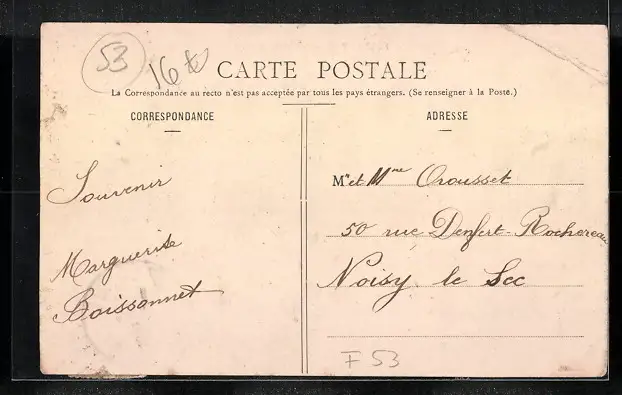 53
16
CARTE POSTALE
La Correspondance au recto n'est pas acceptée par tous les pays étrangers. (Se renseigner à la Poste.)
CORRESPONDANCE
Souvenir
Marguerite
Boissonnet
ADRESSE
Mr et Mme Crousset
50 rue Denfert-Rochereau
Noisy le Sec
F 53